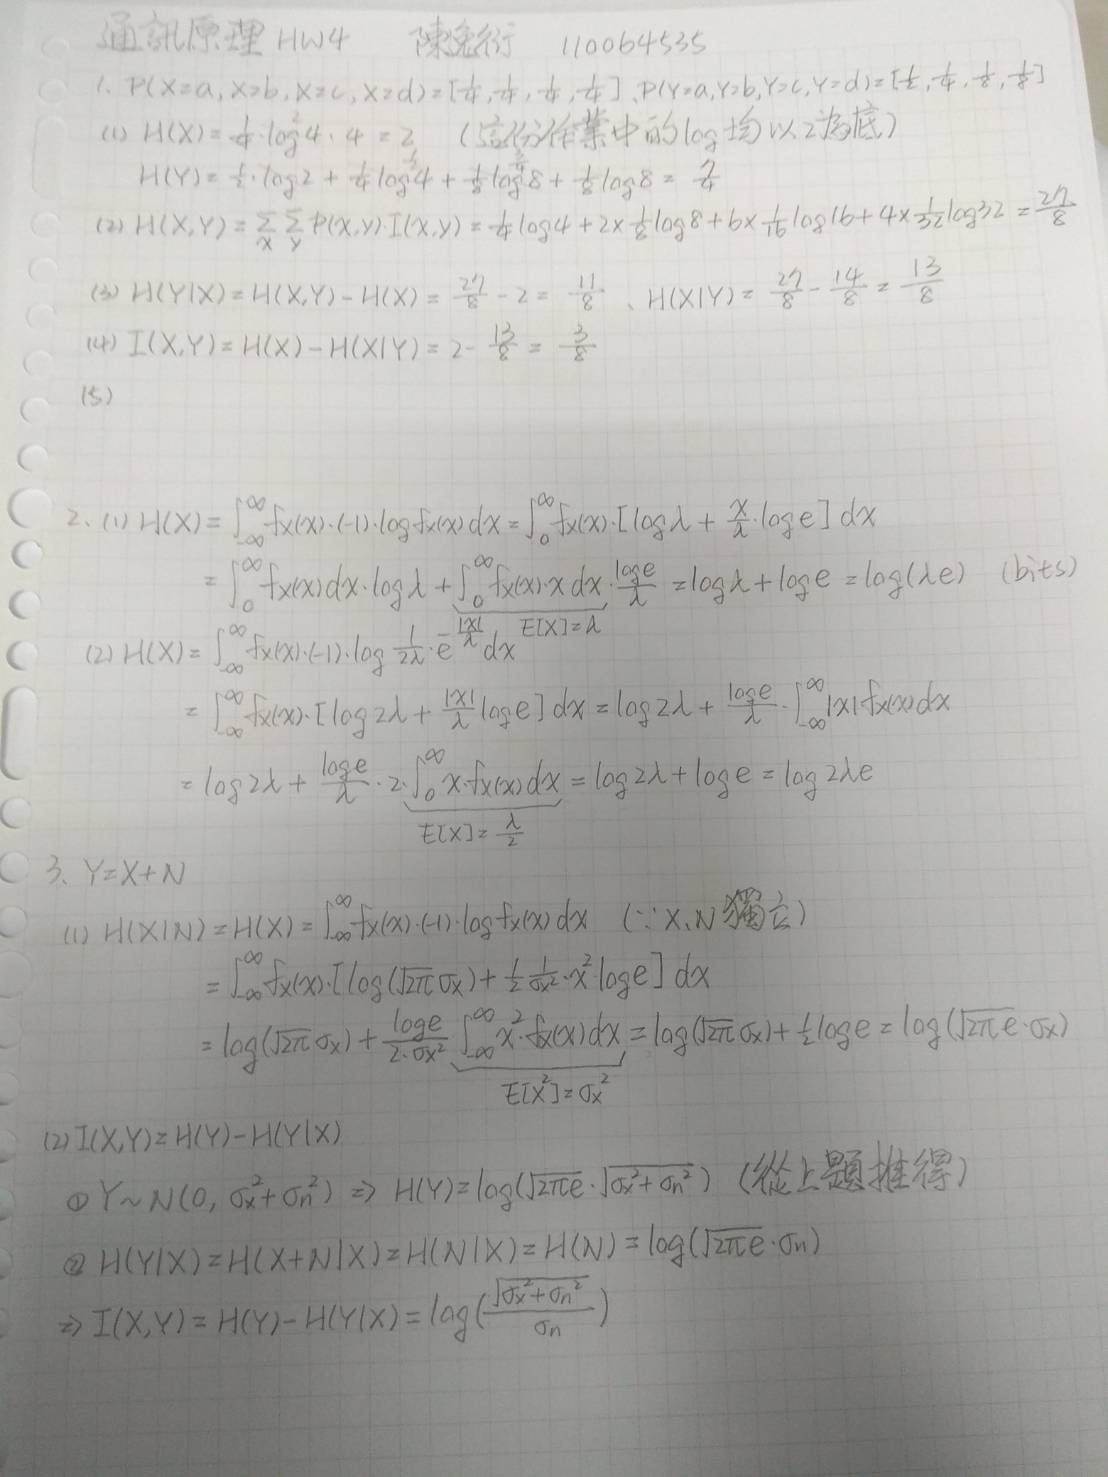 通訊原理 HW4 陳 衍 110064535
1. P(X=a, X=b, X=c, X=d)=[1/4, 1/4, 1/4, 1/4]、P(Y=a, Y=b, Y=c, Y=d)=[1/2, 1/4, 1/8, 1/8]
(1) H(X)=1/4·log4·4=2 (這份作業中的log均以2為底)
H(Y)=1/2·log2+1/4log4+1/8log8+1/8log8=7/4
(2) H(X,Y)=∑x∑y P(x,y)·I(x,y)=1/4log4+2×1/8log8+6×1/16log16+4×1/32log32=27/8
(3) H(Y|X)=H(X,Y)-H(X)=27/8-2=11/8、H(X|Y)=27/8-14/8=13/8
(4) I(X,Y)=H(X)-H(X|Y)=2-13/8=3/8
(5)
2. (1) H(X)=∫_-∞^∞ fx(x)·(-1)·logfx(x)dx=∫_0^∞ fx(x)·[logλ+x/λ·loge]dx
=∫_0^∞ fx(x)dx·logλ+∫_0^∞ fx(x)·x dx·loge/λ=logλ+loge=log(λe) (bits)
E[X]=λ
(2) H(X)=∫_-∞^∞ fx(x)·(-1)·log 1/2λ·e^-|x|/λ dx
=∫_-∞^∞ fx(x)·[log2λ+|x|/λ loge]dx=log2λ+loge/λ·∫_-∞^∞ |x|·fx(x)dx
=log2λ+loge/λ·2·∫_0^∞ x·fx(x)dx=log2λ+loge=log2λe
E[X]=λ/2
3. Y=X+N
(1) H(X|N)=H(X)=∫_-∞^∞ fx(x)·(-1)·logfx(x)dx (∵X、N獨立)
=∫_-∞^∞ fx(x)·[log(√2π σx)+1/2 1/σx²·x²·loge]dx
=log(√2π σx)+loge/2·σx² ∫_-∞^∞ x²·fx(x)dx=log(√2π σx)+1/2loge=log(√2πe·σx)
E[X²]=σx²
(2) I(X,Y)=H(Y)-H(Y|X)
① Y~N(0, σx²+σn²) ⇒ H(Y)=log(√2πe·√σx²+σn²) (從上題推得)
② H(Y|X)=H(X+N|X)=H(N|X)=H(N)=log(√2πe·σn)
⇒ I(X,Y)=H(Y)-H(Y|X)=log(√σx²+σn²/σn)